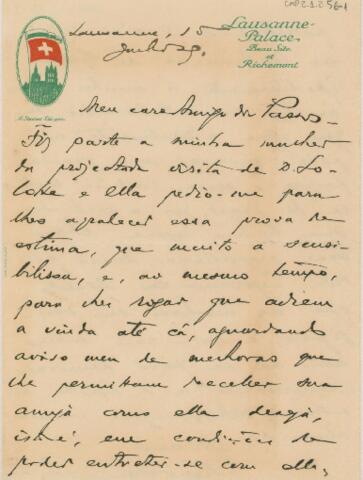 CMP 2.1.2.56-1
Lausanne-
Palace
Beau Site
et
Richemont
Lausanne, 15
Junho 29.
Meu caro Amigo Dr. Passos
Fiz parte a minha mulher
da projectada visita de D.
e ella pedio-me para
lhes agradecer essa prova de
estima, que muito a sensi-
bilisou, e, ao mesmo tempo,
para lhes rogar que adiem
a vinda até cá, aguardando
aviso meu de melhoras que
lhe permittam receber sua
amiga como ella deseja,
isto é, em condições de
poder entreter-se com ella,